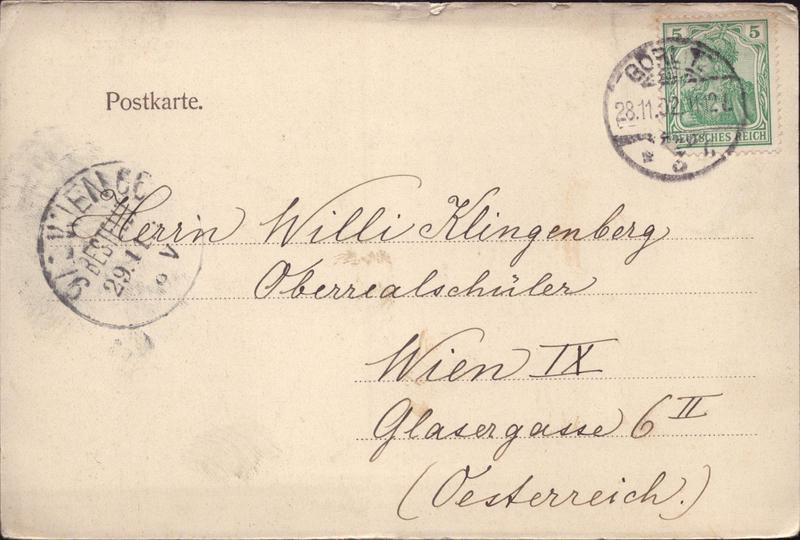 5 5
28.11.02.
DEUTSCHES REICH
Postkarte.
WIEN
BESTELLT
29.11
Herrn Willi Klingenberg
Oberrealschüler
Wien IX
Glasergasse 6 II
(Oesterreich.)